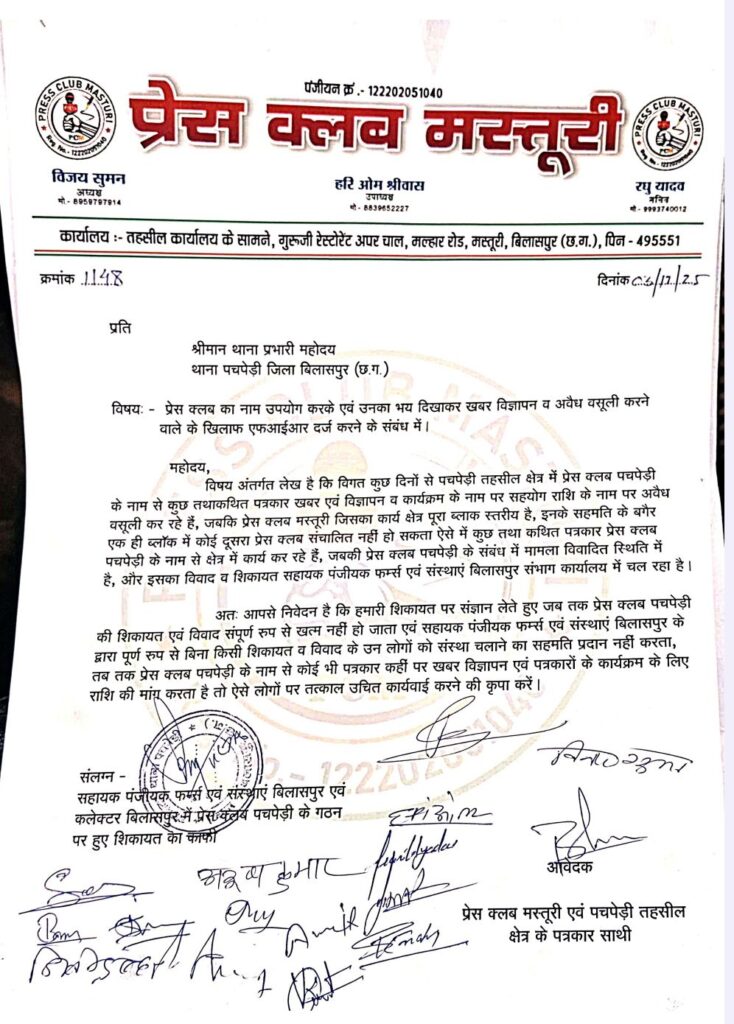 पंजीयन क्रं .- 122202051040
PRESS CLUB MASTURI
प्रेस क्लब मस्तूरी
PRESS CLUB MASTURI
विजय सुमन
अध्यक्ष
मो.- 8959797914
हरि ओम श्रीवास
उपाध्यक्ष
मो.- 8839652227
रघु यादव
सचिव
मो.- 9993740012
कार्यालय :- तहसील कार्यालय के सामने, गुरूजी रेस्टोरेंट अपर चाल, मल्हार रोड, मस्तूरी, बिलासपुर (छ.ग.), पिन - 495551
क्रमांक 1148
दिनांक /12/25
प्रति
श्रीमान थाना प्रभारी महोदय
थाना पचपेड़ी जिला बिलासपुर (छ.ग.)
विषय: - प्रेस क्लब का नाम उपयोग करके एवं उनका भय दिखाकर खबर विज्ञापन व अवैध वसूली करने
वाले के खिलाफ एफआईआर दर्ज करने के संबंध में।
महोदय,
विषय अंतर्गत लेख है कि विगत कुछ दिनों से पचपेड़ी तहसील क्षेत्र में प्रेस क्लब पचपेड़ी
के नाम से कुछ तथाकथित पत्रकार खबर एवं विज्ञापन व कार्यक्रम के नाम पर सहयोग राशि के नाम पर अवैध
वसूली कर रहे हैं, जबकि प्रेस क्लब मस्तूरी जिसका कार्य क्षेत्र पूरा ब्लाक स्तरीय है, इनके सहमति के बगैर
एक ही ब्लॉक में कोई दूसरा प्रेस क्लब संचालित नहीं हो सकता ऐसे में कुछ तथा कथित पत्रकार प्रेस क्लब
पचपेड़ी के नाम से क्षेत्र में कार्य कर रहे हैं, जबकी प्रेस क्लब पचपेड़ी के संबंध में मामला विवादित स्थिति में
है, और इसका विवाद व शिकायत सहायक पंजीयक फर्म्स एवं संस्थाएं बिलासपुर संभाग कार्यालय में चल रहा है।
अतः आपसे निवेदन है कि हमारी शिकायत पर संज्ञान लेते हुए जब तक प्रेस क्लब पचपेड़ी
की शिकायत एवं विवाद संपूर्ण रुप से खत्म नहीं हो जाता एवं सहायक पंजीयक फर्म्स एवं संस्थाएं बिलासपुर के
द्वारा पूर्ण रुप से बिना किसी शिकायत व विवाद के उन लोगों को संस्था चलाने का सहमति प्रदान नहीं करता,
तब तक प्रेस क्लब पचपेड़ी के नाम से कोई भी पत्रकार कहीं पर खबर विज्ञापन एवं पत्रकारों के कार्यक्रम के लिए
राशि की मांग करता है तो ऐसे लोगों पर तत्काल उचित कार्यवाई करने की कृपा करें।
संलग्न -
सहायक पंजीयक फर्म्स एवं संस्थाएं बिलासपुर एवं
कलेक्टर बिलासपुर में प्रेस क्लब पचपेड़ी के गठन
पर हुए शिकायत का कॉफी
आवेदक
प्रेस क्लब मस्तूरी एवं पचपेड़ी तहसील
क्षेत्र के पत्रकार साथी